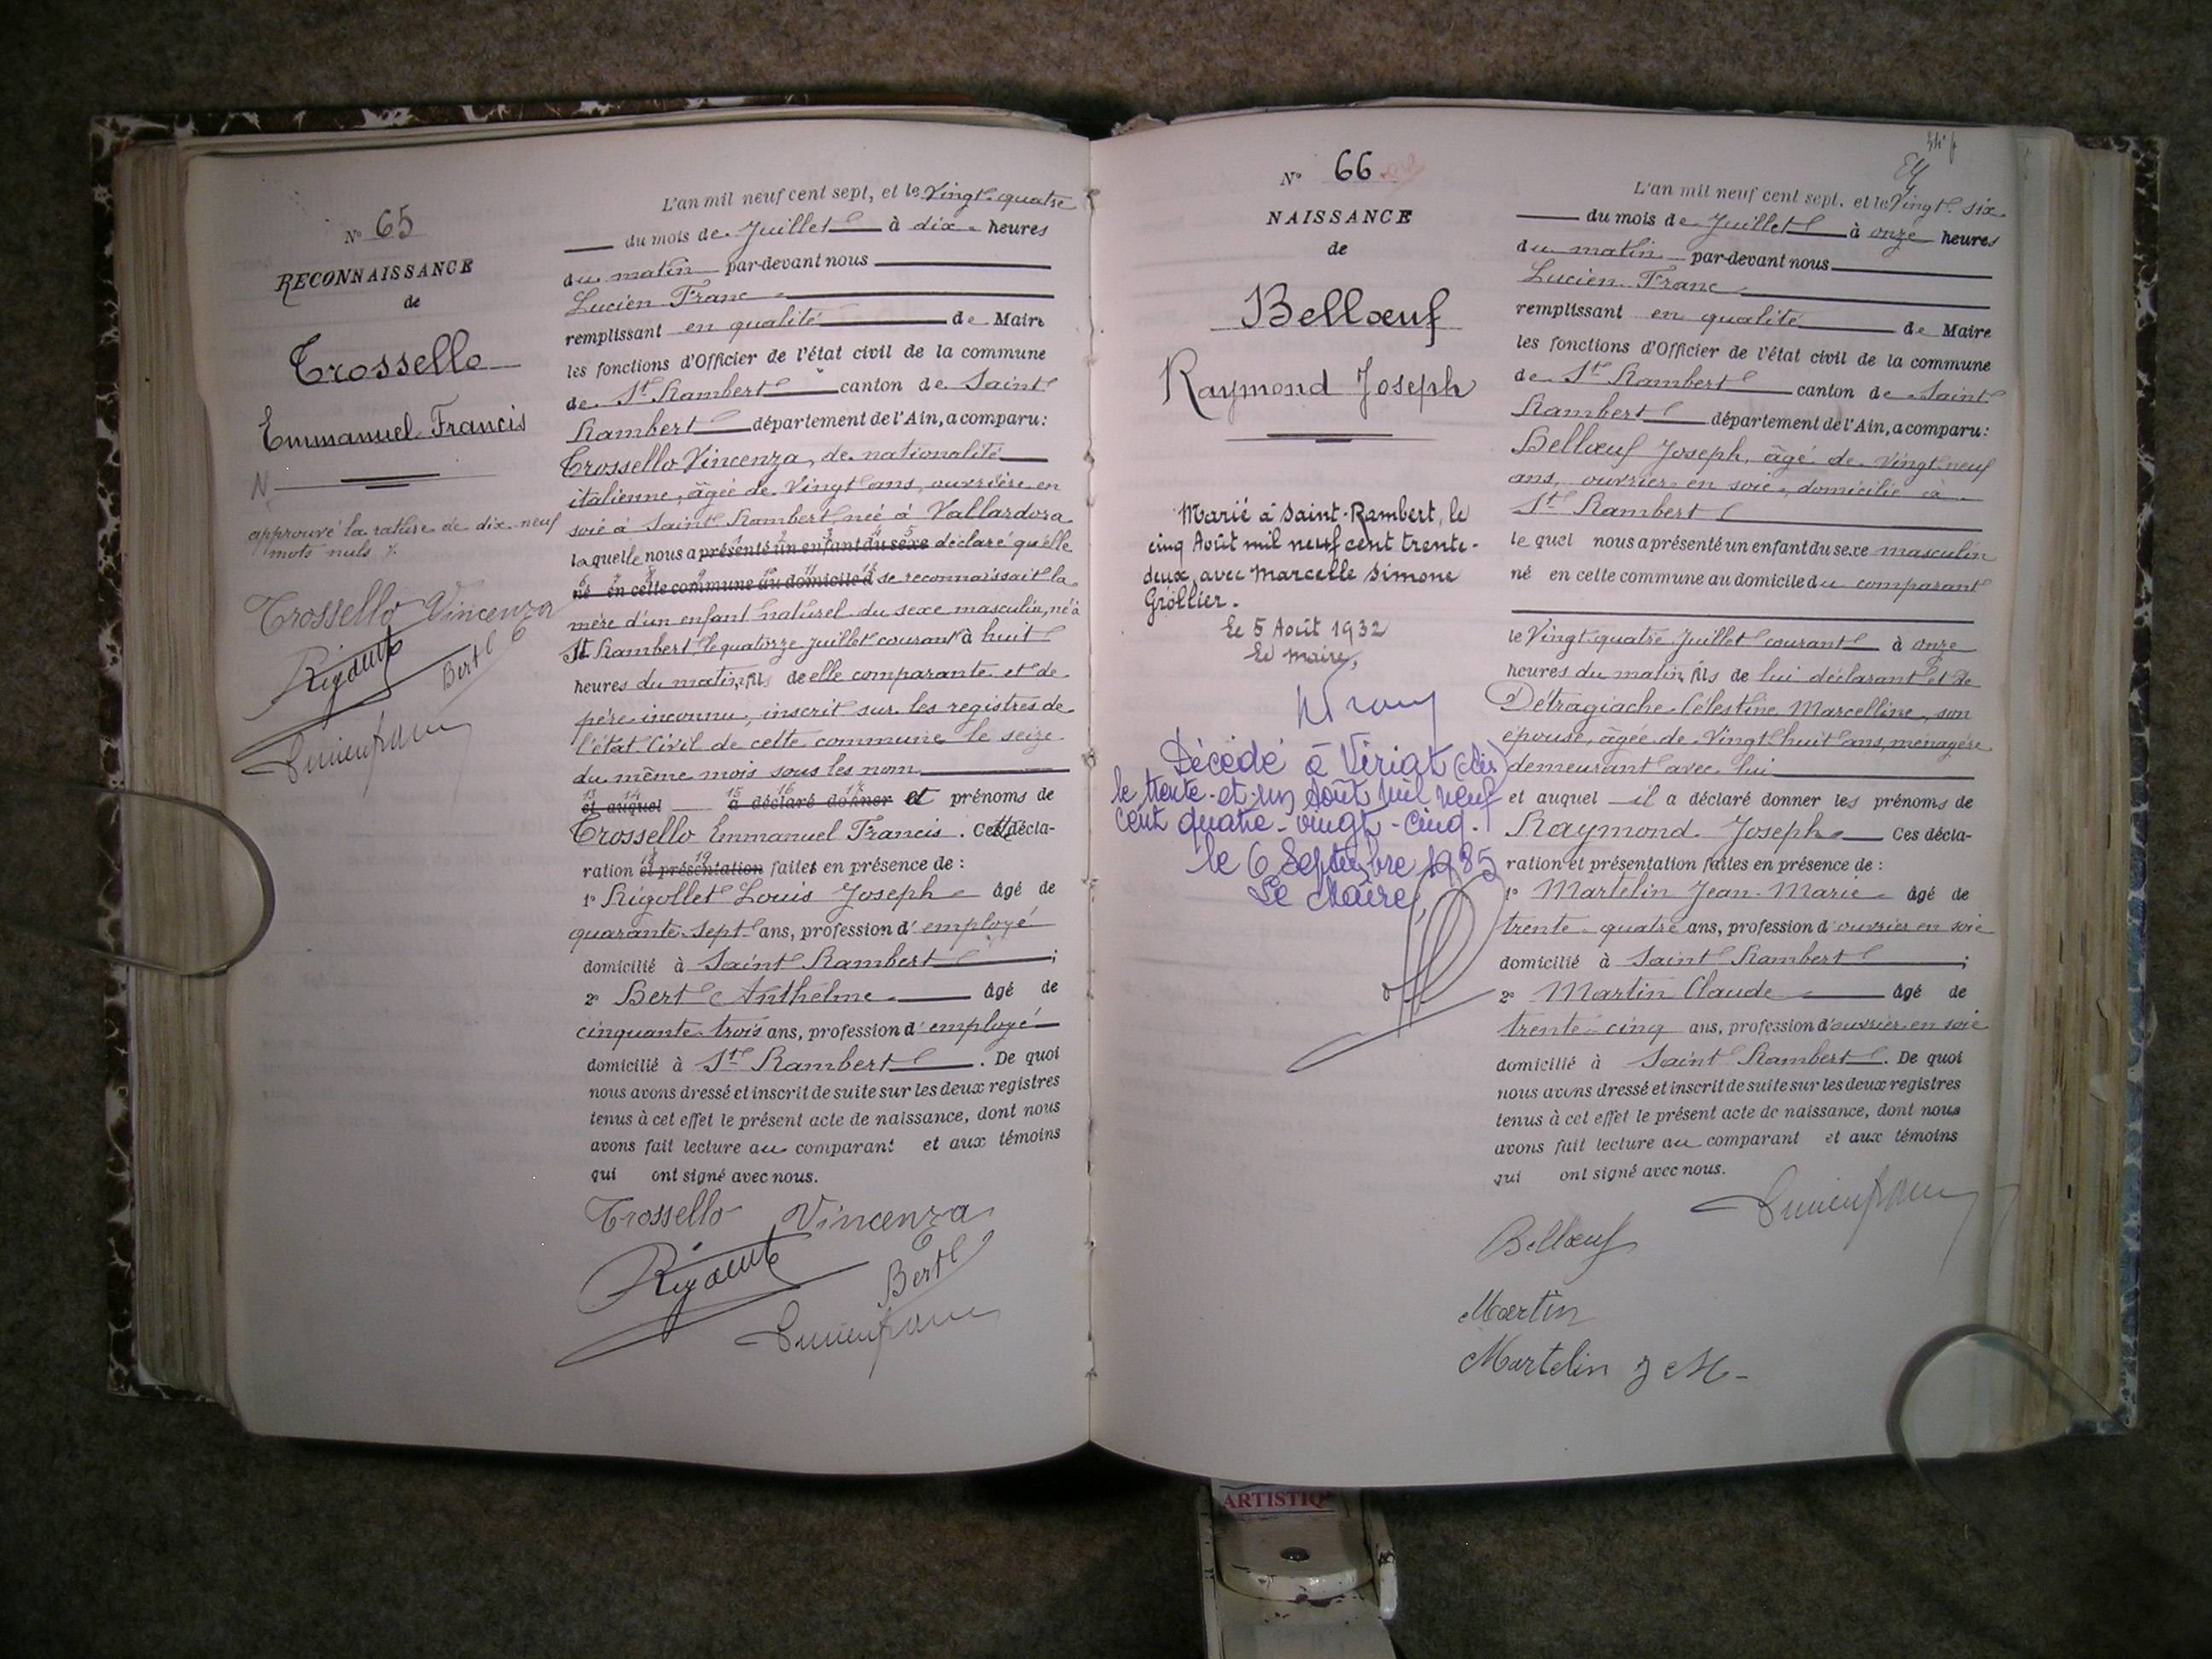 N° 65
RECONNAISSANCE
de
Trossello
Emmanuel Francis
N
approuvé la rature de dix-neuf
mots nuls
Trossello Vincenza
Bert
L'an mil neuf cent sept, et le Vingt-quatre
du mois de Juillet à dix heures
du matin par-devant nous
Lucien Franc
remplissant en qualité de Maire
les fonctions d'Officier de l'état civil de la commune
de St Rambert canton de Saint
Rambert département de l'Ain, a comparu:
Trossello Vincenza, de nationalité
italienne, âgée de Vingt ans, ouvrière en
soie à Saint Rambert, née à Vallardora
laquelle nous a présenté un enfant du sexe déclaré qu'elle
né en cette commune au domicile d se reconnaissait la
mère d'un enfant naturel du sexe masculin, né à
St Rambert, le quatorze Juillet courant à huit
heures du matin, fils de elle comparante et de
père inconnu, inscrit sur les registres de
l'état Civil de cette commune le seize
du même mois sous les nom
et auquel a déclaré donner et prénoms de
Trossello Emmanuel Francis. Cette décla-
ration et présentation faites en présence de :
1° Rigollet Louis Joseph âgé de
quarante-sept ans, profession d'employé
domicilié à Saint Rambert ;
2° Bert Anthelme âgé de
cinquante-trois ans, profession d'employé
domicilié à St Rambert. De quoi
nous avons dressé et inscrit de suite sur les deux registres
tenus à cet effet le présent acte de naissance, dont nous
avons fait lecture au comparant et aux témoins
qui ont signé avec nous.
Trossello Vincenza
Bert
N° 66
NAISSANCE
de
Bellœuf
Raymond Joseph
Marié à Saint-Rambert, le
cinq Août mil neuf cent trente-
deux, avec Marcelle Simone
Grollier.
Le 5 Août 1932
Le Maire,
Décédé à Viriat (Ain)
le trente-et-un Août mil neuf
cent quatre-vingt-cinq.
le 6 Septembre 1985
Le Maire,
L'an mil neuf cent sept, et le Vingt-six
du mois de Juillet à onze heures
du matin par-devant nous
Lucien Franc
remplissant en qualité de Maire
les fonctions d'Officier de l'état civil de la commune
de St Rambert canton de Saint
Rambert département de l'Ain, a comparu:
Bellœuf Joseph, âgé de Vingt-neuf
ans, ouvrier en soie, domicilié à
St Rambert
lequel nous a présenté un enfant du sexe masculin
né en cette commune au domicile du comparant
le Vingt-quatre Juillet courant à onze
heures du matin, fils de lui déclarant et de
Détragiache Célestine Marcelline, son
épouse, âgée de Vingt-huit ans, ménagère
demeurant avec lui
et auquel il a déclaré donner les prénoms de
Raymond Joseph Ces décla-
ration et présentation faites en présence de :
1° Martelin Jean-Marie âgé de
trente-quatre ans, profession d'ouvrier en soie
domicilié à Saint Rambert ;
2° Martin Claude âgé de
trente-cinq ans, profession d'ouvrier en soie
domicilié à Saint Rambert. De quoi
nous avons dressé et inscrit de suite sur les deux registres
tenus à cet effet le présent acte de naissance, dont nous
avons fait lecture au comparant et aux témoins
qui ont signé avec nous.
Bellœuf
Martin
Martelin J M